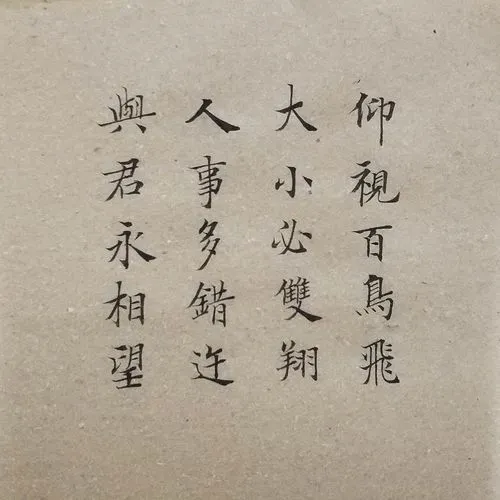 仰視百鳥飛
大小必雙翔
人事多錯迕
與君永相望